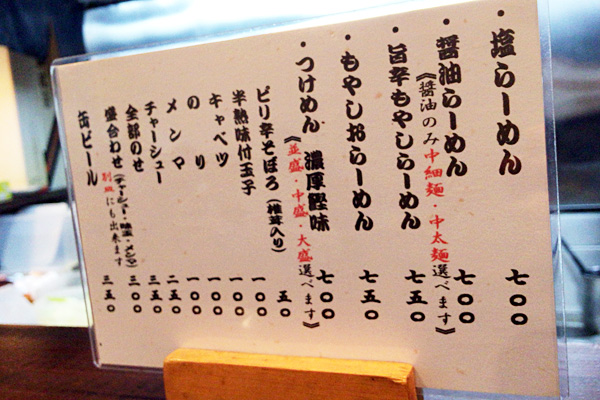 ・塩らーめん 七〇〇
・醤油らーめん 七〇〇
《醤油のみ中細麺・中太麺選べます》
・旨辛もやしらーめん 七五〇
・もやしおらーめん 七五〇
・つけめん 濃厚鰹味 七〇〇
《並盛・中盛・大盛選べます》
ピリ辛そぼろ(椎茸入り) 五〇
半熟味付玉子 一〇〇
キャベツ 一〇〇
のり 一〇〇
メンマ 二五〇
チャーシュー 三五〇
全部のせ 三五〇
盛合わせ(チャーシュー・味玉・メンマ)
別皿にも出来ます
缶ビール 三五〇